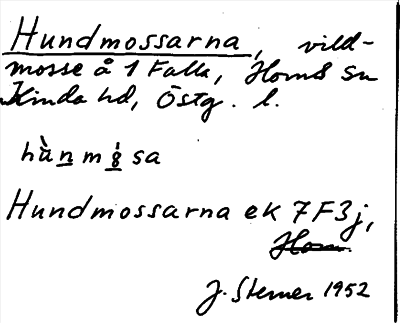 Hundmossarna, vild-
mosse å 1 Falla, Horns sn
Kinda hd, Östg. l.
hùn m ȯ sa
Hundmossarna ek 7F3j,
Horn
J. Sterner 1952